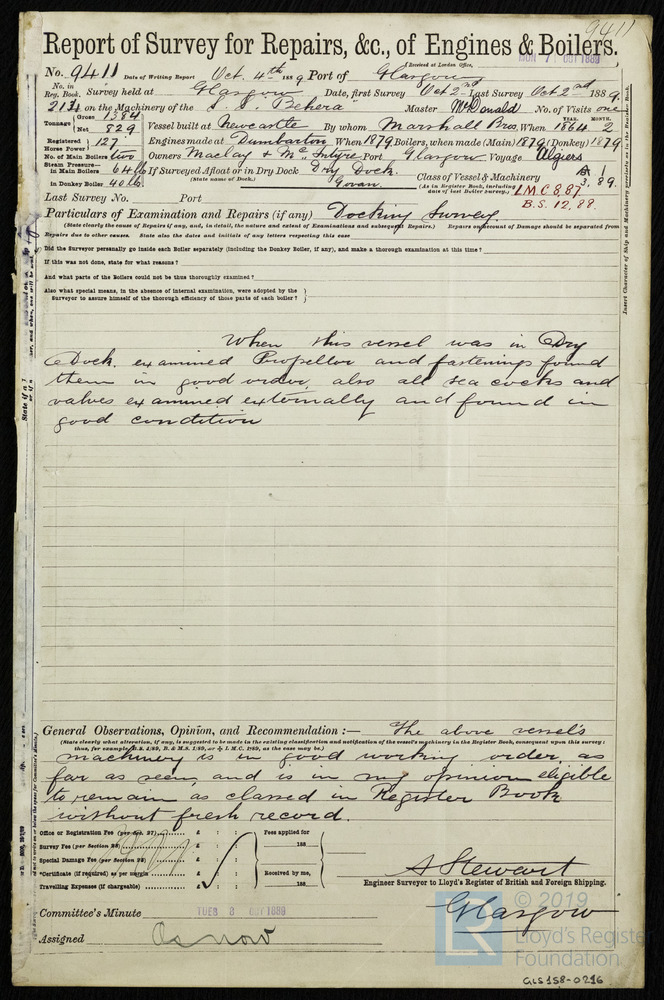 9411
Report of Survey for Repairs, &c., of Engines & Boilers.
(Received at London Office, MON 7 OCT 1889
No. 9411 Date of Writing Report Oct. 4th 1889 Port of Glasgow
No. in Reg. Book. Survey held at Glasgow Date, first Survey Oct 2nd Last Survey Oct 2nd 1889.
2131 on the Machinery of the S. S. "Behera" Master McDonald No. of Visits one
Tonnage { Gross 1384 Net 829 Vessel built at Newcastle By whom Marshall Bros. When YEAR. 1864 MONTH. 2
Registered Horse Power } 127 Engines made at Dumbarton When 1879 Boilers, when made (Main) 1879 (Donkey) 1879
No. of Main Boilers two Owners Maclay & McIntyre Port Glasgow Voyage Algiers
Steam Pressure— in Main Boilers 64 lb If Surveyed Afloat or in Dry Dock Dry Dock.
(State name of Dock.) Govan. Class of Vessel & Machinery
in Donkey Boiler 40 lb (As in Register Book, including date of last Boiler Survey.) L.M.C. 8,87 3,89.
Last Survey No. Port B.S. 12,88
Particulars of Examination and Repairs (if any) Docking Survey.
(State clearly the cause of Repairs if any, and, in detail, the nature and extent of Examinations and subsequent Repairs.) Repairs on account of Damage should be separated from
Repairs due to other causes. State also the dates and initials of any letters respecting this case
Did the Surveyor personally go inside each Boiler separately (including the Donkey Boiler, if any), and make a thorough examination at this time?
If this was not done, state for what reasons?
And what parts of the Boilers could not be thus thoroughly examined?
Also what special means, in the absence of internal examination, were adopted by the
Surveyor to assure himself of the thorough efficiency of those parts of each boiler?
Insert Character of Ship and Machinery precisely as in the Register Book.
When this vessel was in Dry
Dock. examined Propellor and fastenings found
them in good order, also all sea cocks and
valves examined externally and found in
good condition
General Observations, Opinion, and Recommendation:— The above vessel's
(State clearly what alteration, if any, is suggested to be made in the existing classification and notification of the vessel's machinery in the Register Book, consequent upon this survey:
thus, for example, B.S. 4/89, B. & M.S. 1/89, or L.M.C. 1/89, as the case may be.)
machinery is in good working order, as
far as seen, and is in my opinion eligible
to remain as classed in Register Book
without fresh record.
Office or Registration Fee (per Sec. 27) £ : : Fees applied for
Survey Fee (per Section 28) £ : : 188
Special Damage Fee (per Section 28) £ : :
Certificate (if required) as per margin £ : : Received by me,
Travelling Expenses (if chargeable) £ : : 188
A Stewart
Engineer Surveyor to Lloyd's Register of British and Foreign Shipping.
Glasgow
Committee's Minute TUES 8 OCT 1889
Assigned As now
© 2019
Lloyd's Register
Foundation
GLS158-0216